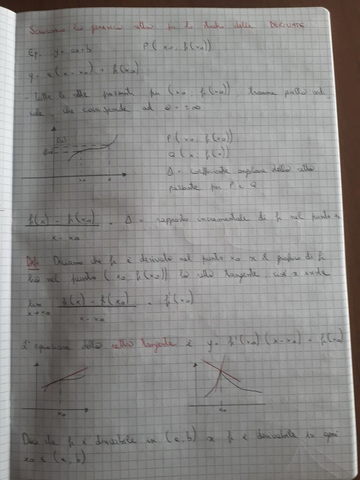 DERIVATE
Eq. y = ax+b P ( x₀, f(x₀))
y = a(x - x₀) + f(x₀)
- tutte le rette passanti per (x₀, f(x₀)) tranne quella
che corrisponde ad a = ±∞
P ( x₀, f(x₀))
Q ( x, f(x))
Δ = coefficiente angolare della retta
passante per P e Q
f(x) - f(x₀) / x - x₀ = Δ = rapporto incrementale di f nel punto x₀
Def. Diciamo che f è derivabile nel punto x₀ se il grafico di f
ha nel punto (x₀, f(x₀)) la retta tangente, cioè se esiste
lim x→x₀ f(x) - f(x₀) / x - x₀ = f'(x₀)
L'equazione della retta tangente è y = f'(x₀)(x-x₀) + f(x₀)
x₀ x₀
Dico che f è derivabile in (a,b) se f è derivabile in ogni
x₀ ∈ (a,b)